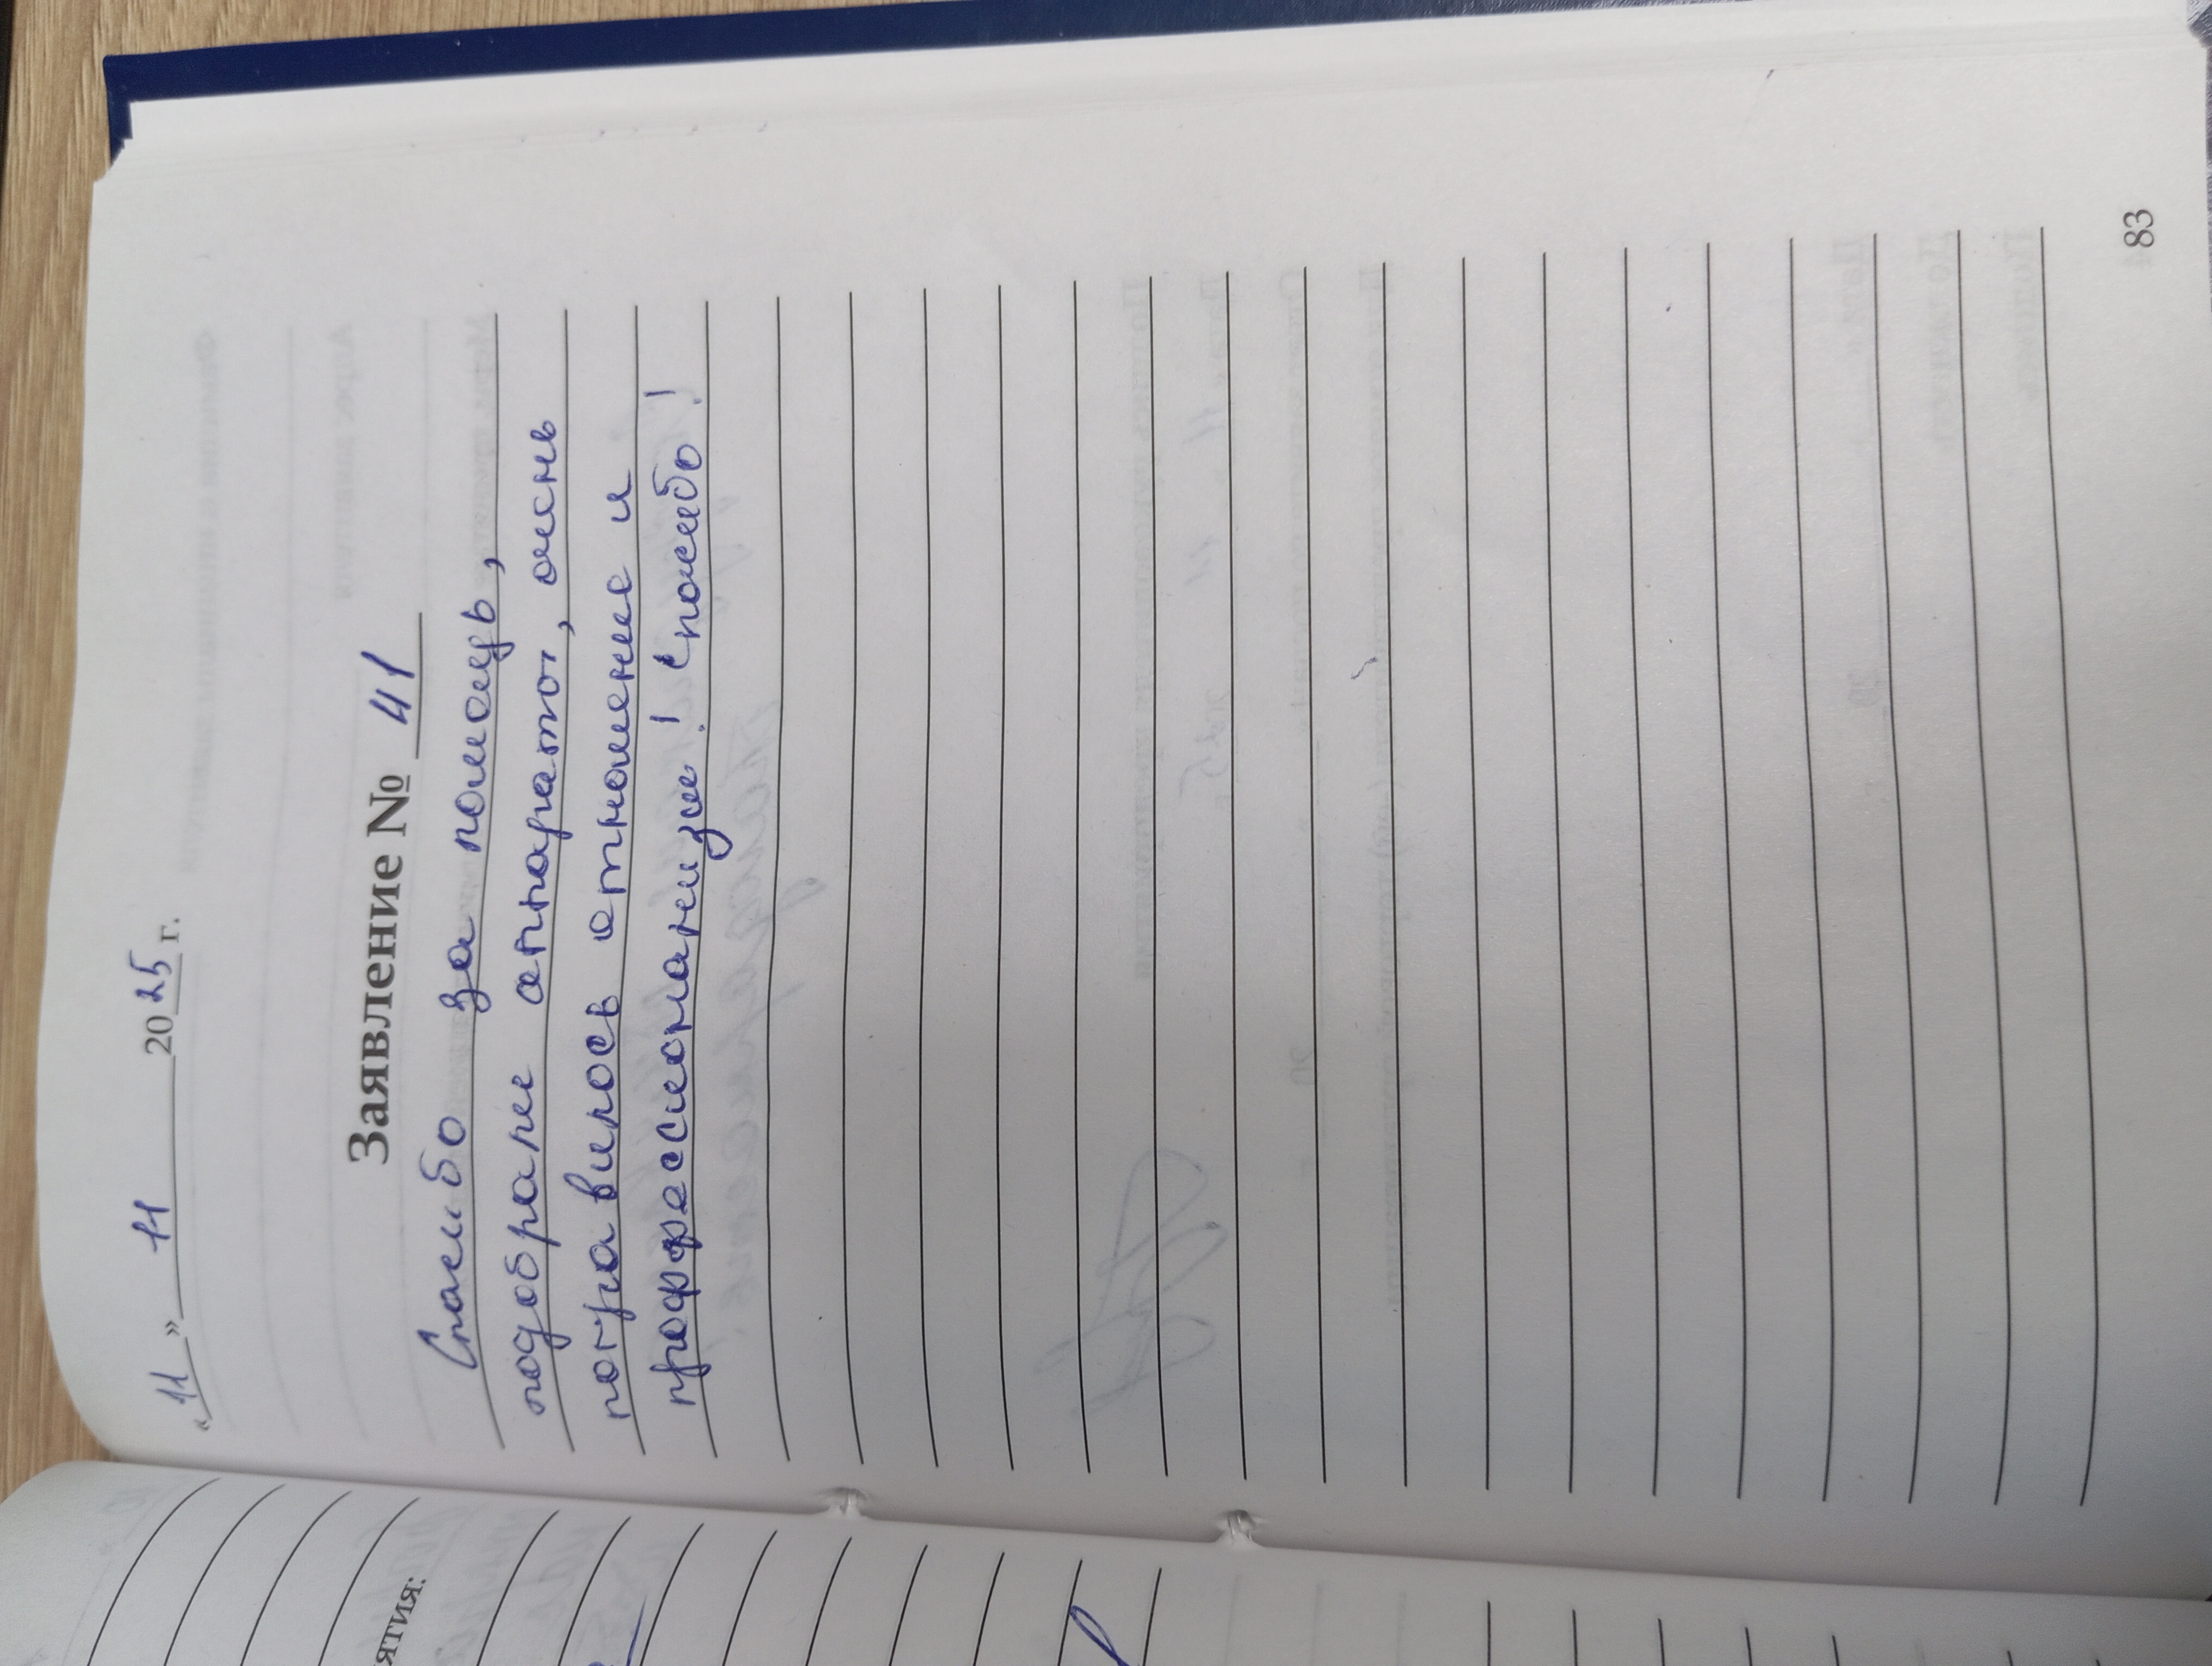 «11» 11 2025 г.
Заявление № 41
Спасибо за помощь,
подобрали аппарат, очень
понравилось отношение и
профессионализм! Спасибо!
83
ятия: